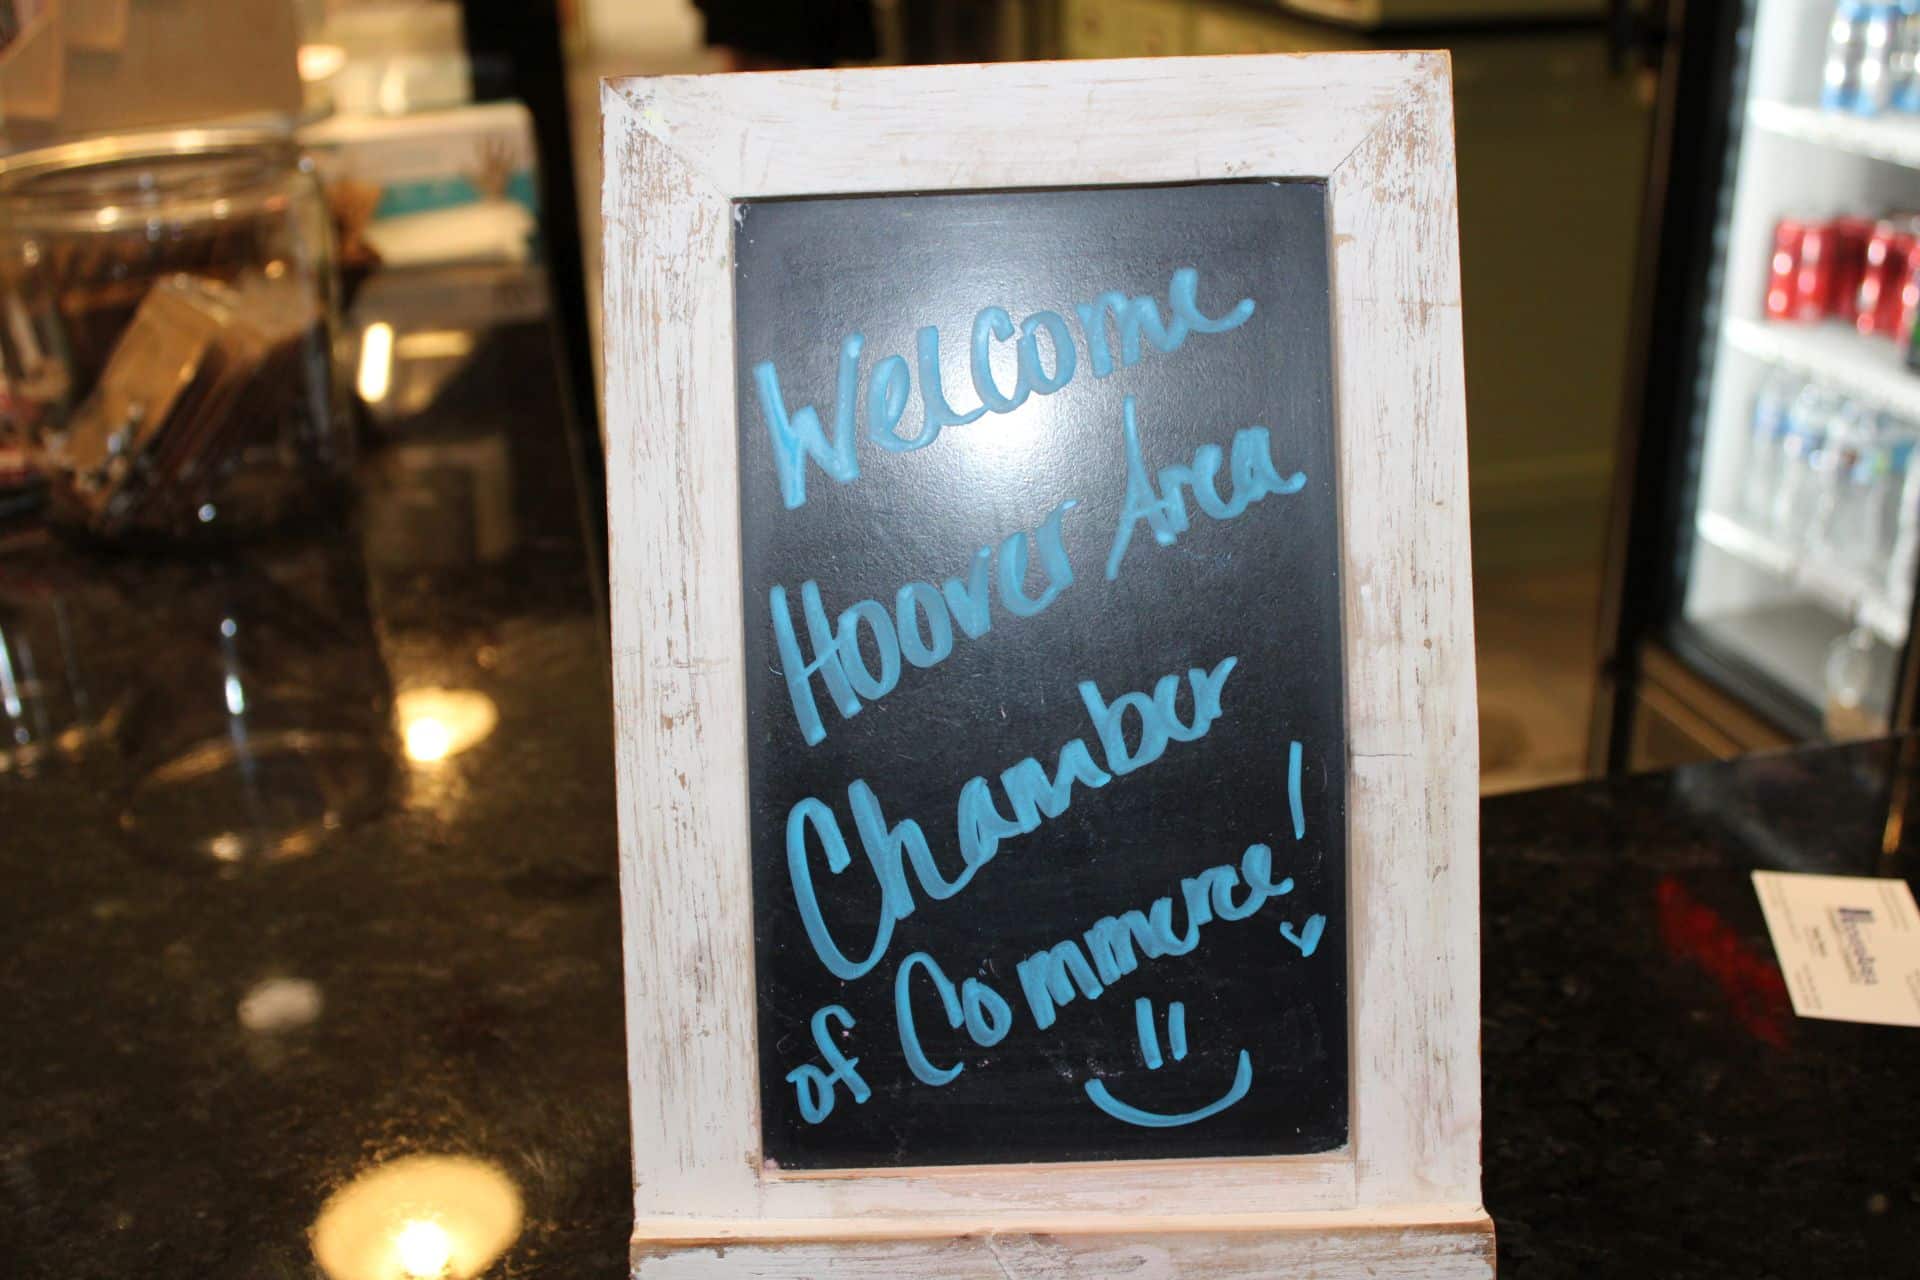 Welcome
Hoover Area
Chamber
of Commerce!